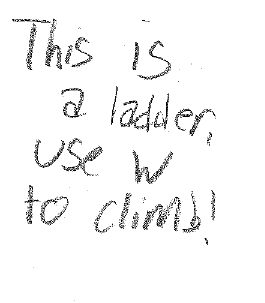 This is
a ladder,
use W
to climb!